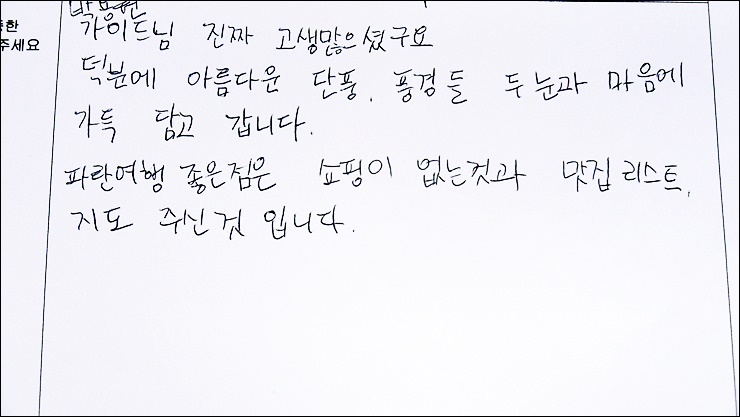 한
주세요
박용현
가이드님 진짜 고생많으셨구요
덕분에 아름다운 단풍, 풍경들 두눈과 마음에
가득 담고 갑니다.
파란여행 좋은점은 쇼핑이 없는것과 맛집리스트,
지도 주신것 입니다.